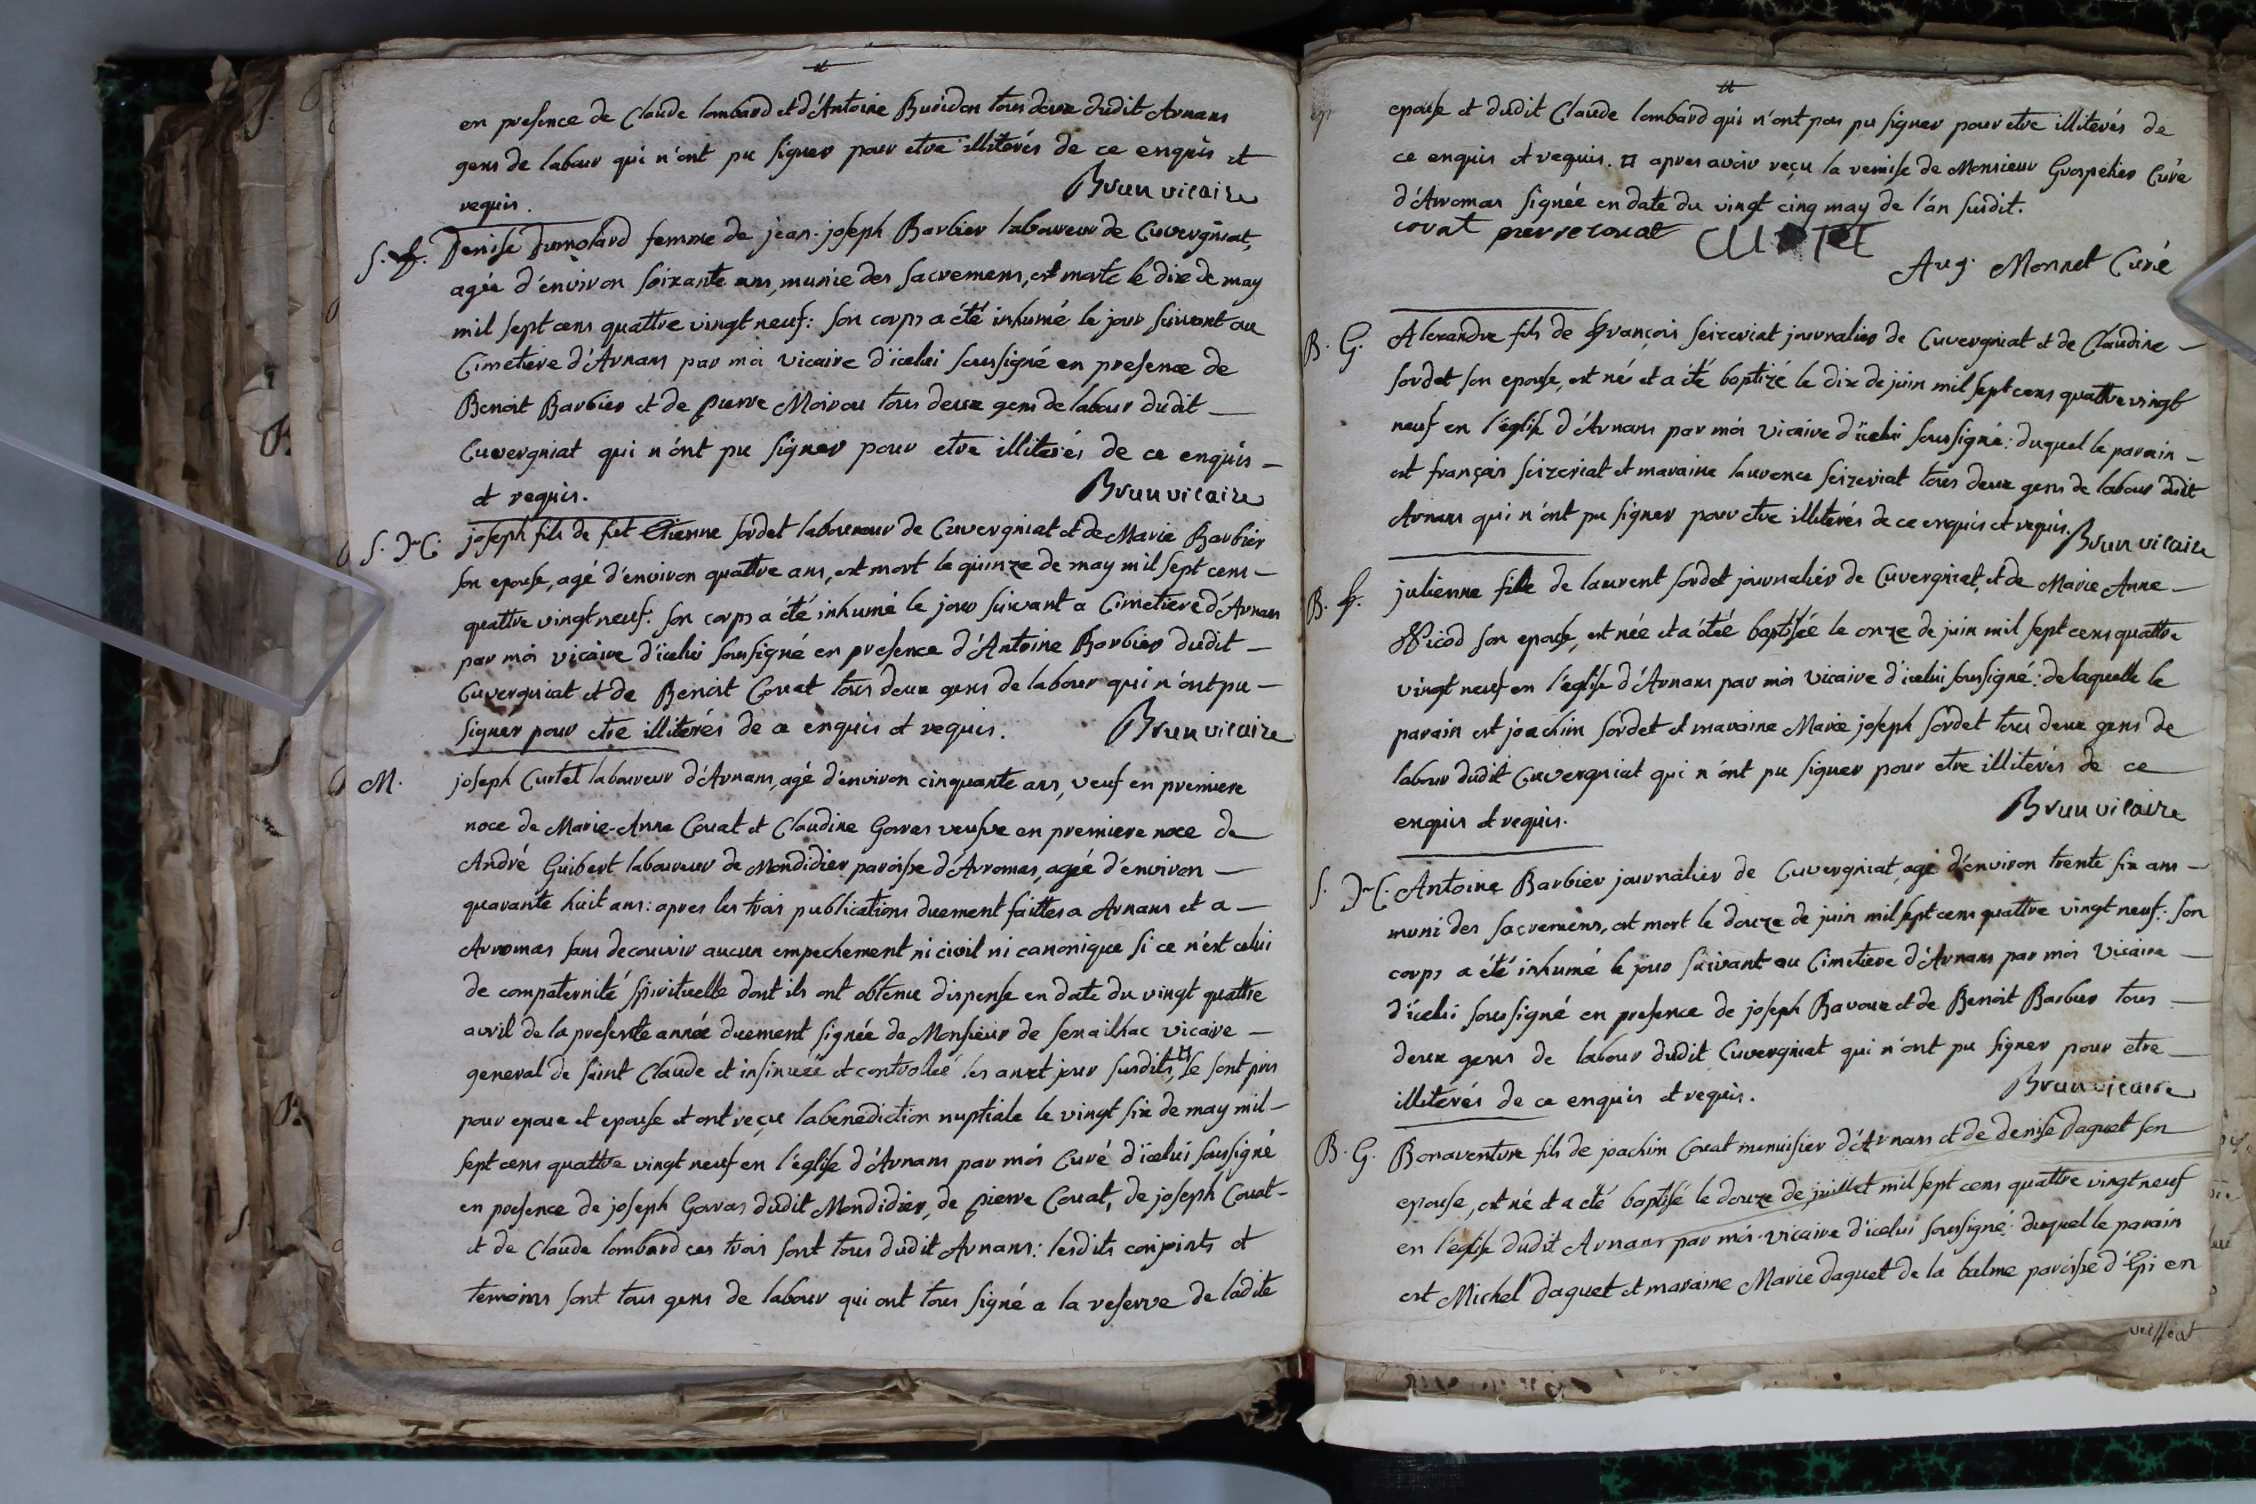 en presence de Claude lombard et d'Antoine Buridon tous deux dudit Arnans
gens de labour qui n'ont pu signer pour etre illiterés de ce enquis et
requis. Brun vicaire
S. f. Denise Dumolard femme de jean-joseph Barbier laboureur de Cuvergniat,
agée d'environ soixante ans, munie des sacremens, est morte le dix de may
mil sept cens quattre vingt neuf: son corps a été inhumé le jour suivant au
Cimetiere d'Arnans par moi vicaire d'icelui soussigné en presence de
Benoit Barbier et de pierre Moirou tous deux gens de labour dudit
Cuvergniat qui n'ont pu signer pour etre illiterés de ce enquis
et requis. Brun vicaire
S. joseph fils de fut Etienne sordet laboureur de Cuvergniat et de Marie Barbier
son epouse, agé d'environ quattre ans, est mort le quinze de may mil sept cens
quattre vingt neuf: son corps a été inhumé le jour suivant a Cimetiere d'Arnans
par moi vicaire d'icelui soussigné en presence d'Antoine Barbier dudit
Cuvergniat et de Benoit Couat tous deux gens de labour qui n'ont pu
signer pour etre illiterés de ce enquis et requis. Brun vicaire
M. joseph Curtet laboureur d'Arnans, agé d'environ cinquante ans, veuf en premiere
noce de Marie-Anne Couat et Claudine Gorras veufve en premiere noce de
André Guibert laboureur de Mondidier paroisse d'Aromas, agée d'environ
quarante huit ans: apres les trois publications duement faittes a Arnans et a
Arromas sans decouvrir aucun empechement ni civil ni canonique si ce n'est celui
de compaternité spirituelle dont ils ont obtenu dispense en date du vingt quattre
avril de la presente année duement signée de Monsieur de Senailhac vicaire
general de saint Claude et insinuée et controllée les an et jour susdits, ¤ se sont pris
pour epoux et epouse et ont reçu la benediction nuptiale le vingt six de may mil
sept cens quattre vingt neuf en l'église d'Arnans par moi Curé d'icelui soussigné
en presence de joseph Gorras dudit Mondidier, de pierre Couat, de joseph Couat
et de Claude lombard ces trois sont tous dudit Arnans: lesdits conjoints et
temoins sont tous gens de labour qui ont tous signé a la reserve de ladite
epouse et dudit Claude lombard qui n'ont pas pu signer pour etre illiterés de
ce enquis et requis. ¤ apres avoir reçu la remise de Monsieur Gropelier Curé
d'Arromas signée en date du vingt cinq may de l'an susdit.
couat pierre couat CURTET
Aug. Monnet Curé
B. G. Alexandre fils de françois seizeriat journalier de Cuvergniat et de Claudine
sordet son epouse, est né et a été baptizé le dix de juin mil sept cens quattre vingt
neuf en l'église d'Arnans par moi vicaire d'icelui soussigné: duquel le parain
est françois seizeriat et maraine laurence seizeriat tous deux gens de labour dudit
Arnans qui n'ont pu signer pour etre illiterés de ce enquis et requis. Brun vicaire
B. f. julienne fille de laurent sordet journalier de Cuvergniat, et de Marie Anne
Nicod son epouse, est née et a été baptisée le onze de juin mil sept cens quattre
vingt neuf en l'église d'Arnans par moi vicaire d'icelui soussigné: de laquelle le
parain est joachim sordet et maraine Marie joseph sordet tous deux gens de
labour dudit Cuvergniat qui n'ont pu signer pour etre illiterés de ce
enquis et requis. Brun vicaire
S. Antoine Barbier journalier de Cuvergniat, agé d'environ trente six ans
muni des sacremens, est mort le douze de juin mil sept cens quattre vingt neuf: son
corps a été inhumé le jour suivant au Cimetiere d'Arnans par moi vicaire
d'icelui soussigné en presence de joseph Bavoux et de Benoit Barbier tous
deux gens de labour dudit Cuvergniat qui n'ont pu signer pour etre
illiterés de ce enquis et requis. Brun vicaire
B. G. Bonaventure fils de joachim Couat menuisier d'Arnans et de denise Daguet son
epouse, est né et a été baptisé le douze de juillet mil sept cens quattre vingt neuf
en l'église dudit Arnans par moi vicaire d'icelui soussigné: duquel le parain
est Michel Daguet et maraine Marie Daguet de la balme paroisse d'Epi en